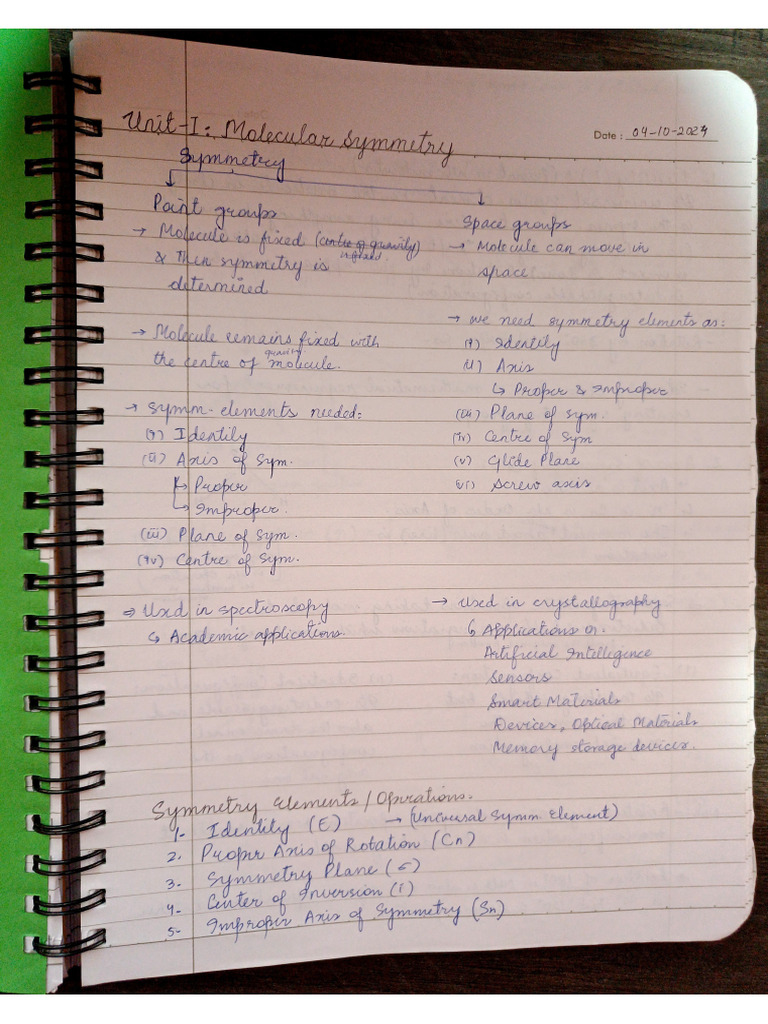 Unit-I: Molecular Symmetry
Date: 04-10-2024
Symmetry
Point groups
→ Molecule is fixed (centre of gravity)
is fixed.
& then symmetry is
determined
→ Molecule remains fixed with
the centre of gravity molecule.
→ Symm. elements needed:
(i) Identity
(ii) Axis of Sym.
↳ Proper
↳ Improper.
(iii) Plane of Sym.
(iv) Centre of Sym.
⇒ Used in spectroscopy
↳ Academic applications.
Space groups
→ Molecule can move in
space
→ We need symmetry elements as:
(i) Identity
(ii) Axis
↳ Proper & Improper
(iii) Plane of sym.
(iv) Centre of Sym
(v) Glide Plane
(vi) Screw axis
→ Used in crystallography
↳ Applications
Artificial Intellegence
Sensors
Smart Materials
Devices, Optical Materials
Memory storage devices.
Symmetry Elements / Operations.
1- Identity (E) → (Universal Symm. Element)
2. Proper Axis of Rotation (Cn)
3. Symmetry Plane (σ)
4- Center of Inversion (i)
5- Improper Axis of Symmetry (Sn)